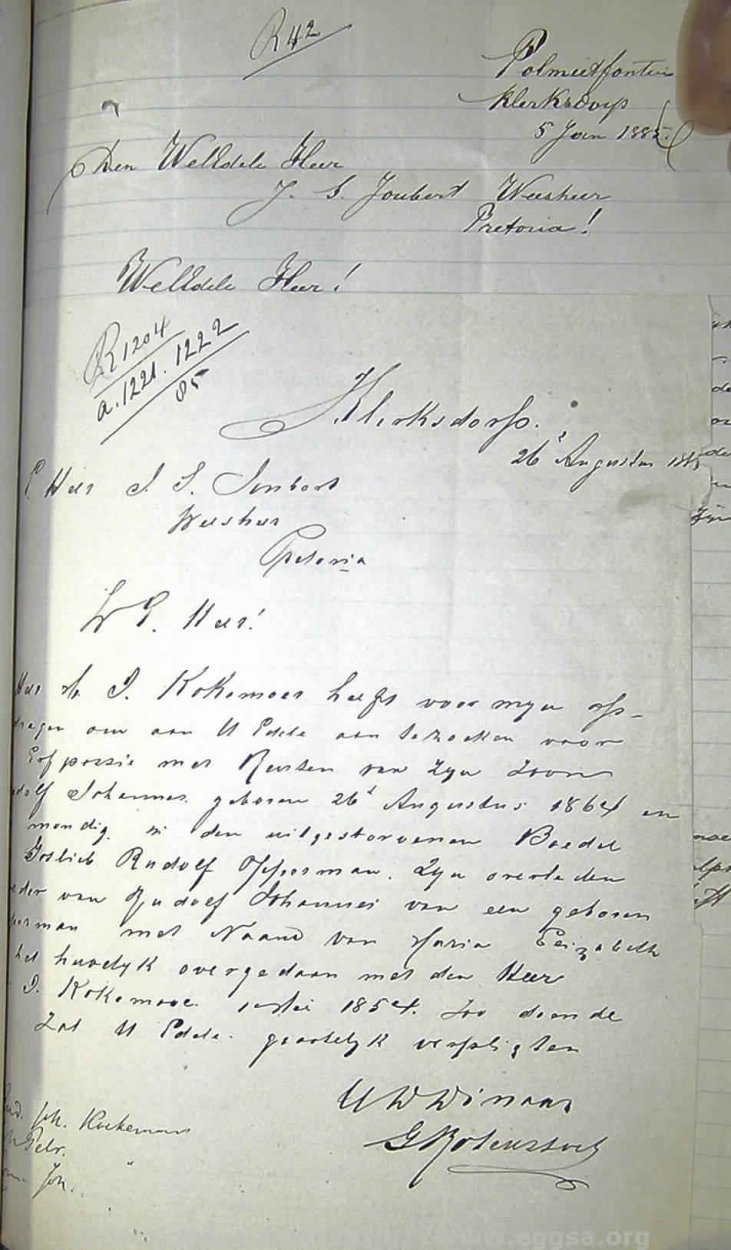 R 42
Klerksdorp
5 Jan 188
Den WelEdele Heer
J. S. Joubert Weesheer
Pretoria!
WelEdele Heer!
R1204
a. 1221. 1222
85
Klerksdorp.
26 Augustus 188
Heer J. S. Joubert
Weesheer
Pretoria
W E. Heer!
Heer J. Kokemoer heeft voor myn op-
dragen om aan U Edele aan te zoeken voor
Erfporsie met Renten van Zyn Zoon
dolf Johannes. geboren 26 Augustus 1864 en
mondig. in den uitgestorvenen Boedel
Gotlieb Rudolf Opperman. Zyn overleden
eder van Rudolf Johannes van een geboren
perman met Naame van Maria Elizabeth
het huwelyk overgedaan met den Heer
J. Kokemoer. 1854. Zoo doende
Zal U Edele. grootelyk verpligten
U W Dienaar
Joh. Koekemoer
Petr. "
Joh.
www.eggsa.org